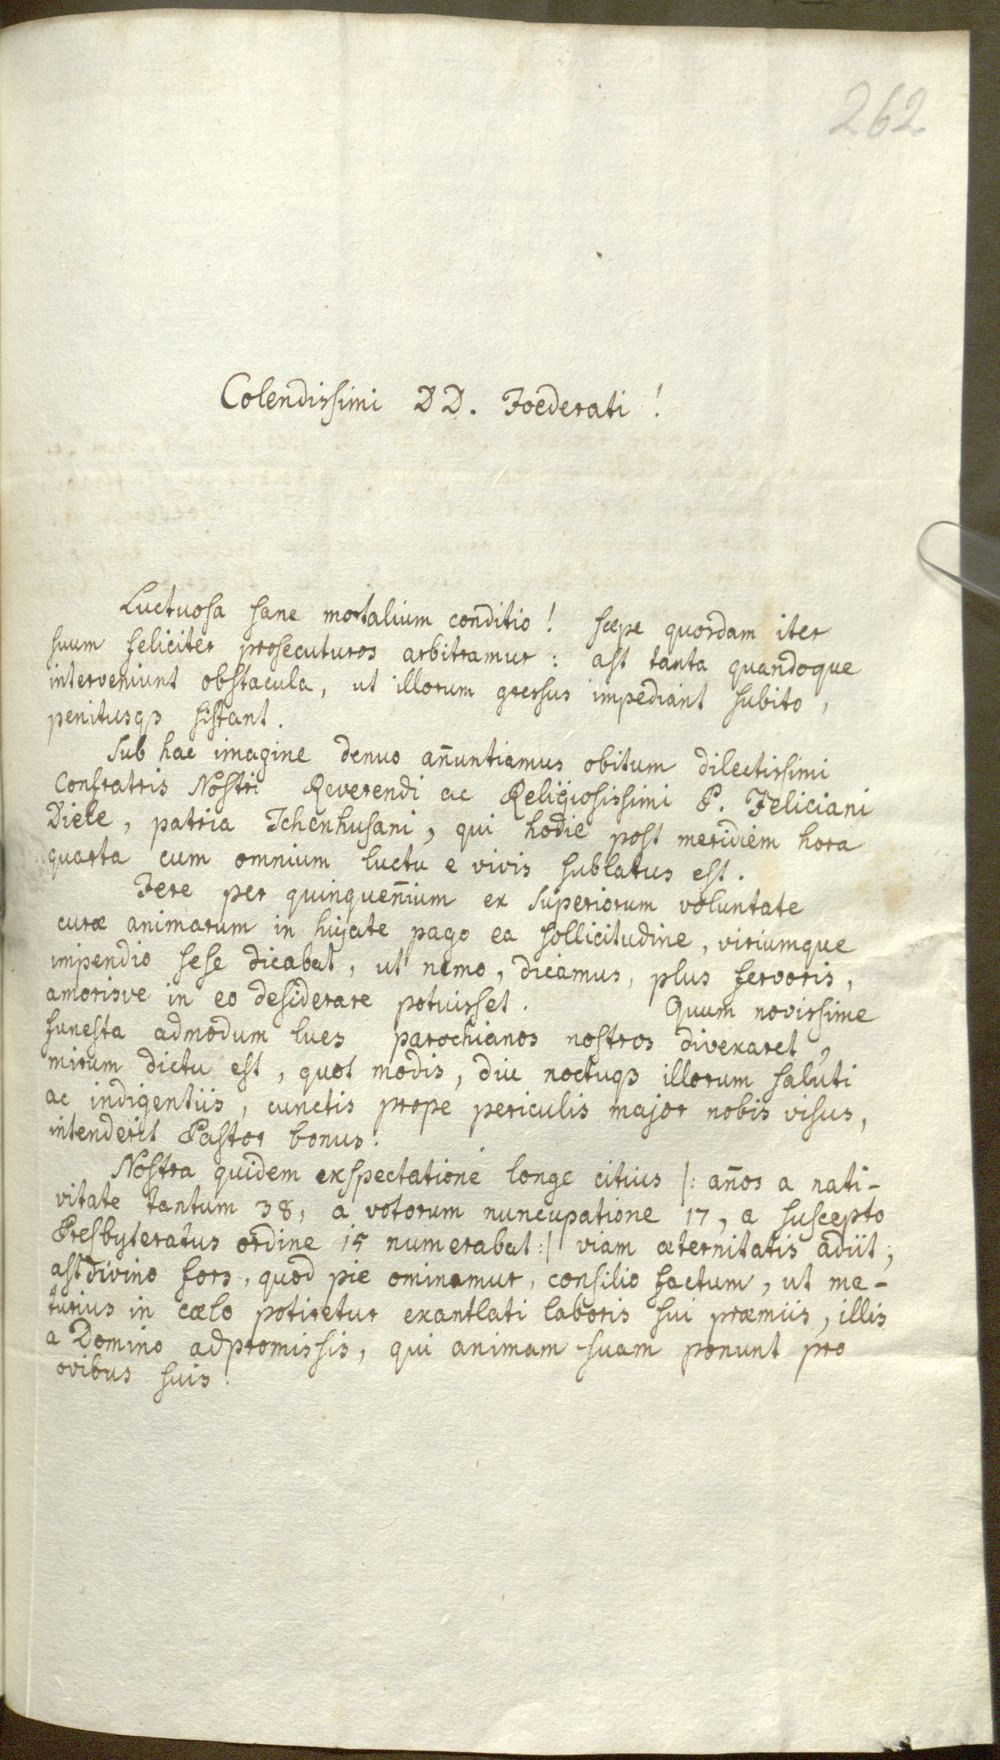 262
Colendissimi DD. Foederati!
Luctuosa sane mortalium conditio! sæpe quosdam iter
suum feliciter prosecuturos arbitramur: ast tanta quandoque
interveniunt obstacula, ut illorum gressus impediant subito,
penitusqs sistant.
Sub hac imagine denuo an̄untiamus obitum dilectissimi
Confratris Nostri Reverendi ac Religiosissimi P. Feliciani
Diele, patria Ichenhusani, qui hodie post meridiem hora
quarta cum omnium luctu e vivis sublatus est.
Fere per quinquen̄ium ex superiorum voluntate
curæ animarum in hujate pago ea sollicitudine, viriumque
impendio sese dicabat, ut nemo, dicamus, plus fervoris,
amorisve in eo desiderare potuisset. Quum novissime
funesta admodum lues parochianos nostros divexaret,
mirum dictu est, quot modis, diu noctuqs illorum saluti
ac indigentiis, cunctis prope periculis major nobis visus,
intenderit Pastor bonus.
Nostra quidem exspectatione longe citius |: an̄os a nati-
vitate tantum 38, a votorum nuncupatione 17, a suscepto
Presbyteratus ordine 15 numerabat :| viam æternitatis adiit;
ast divino fors, quod pie ominamur, consilio factum, ut ma-
turius in cælo potiretur exantlati laboris sui præmiis, illis
a Domino adpromissis, qui animam suam ponunt pro
ovibus suis.